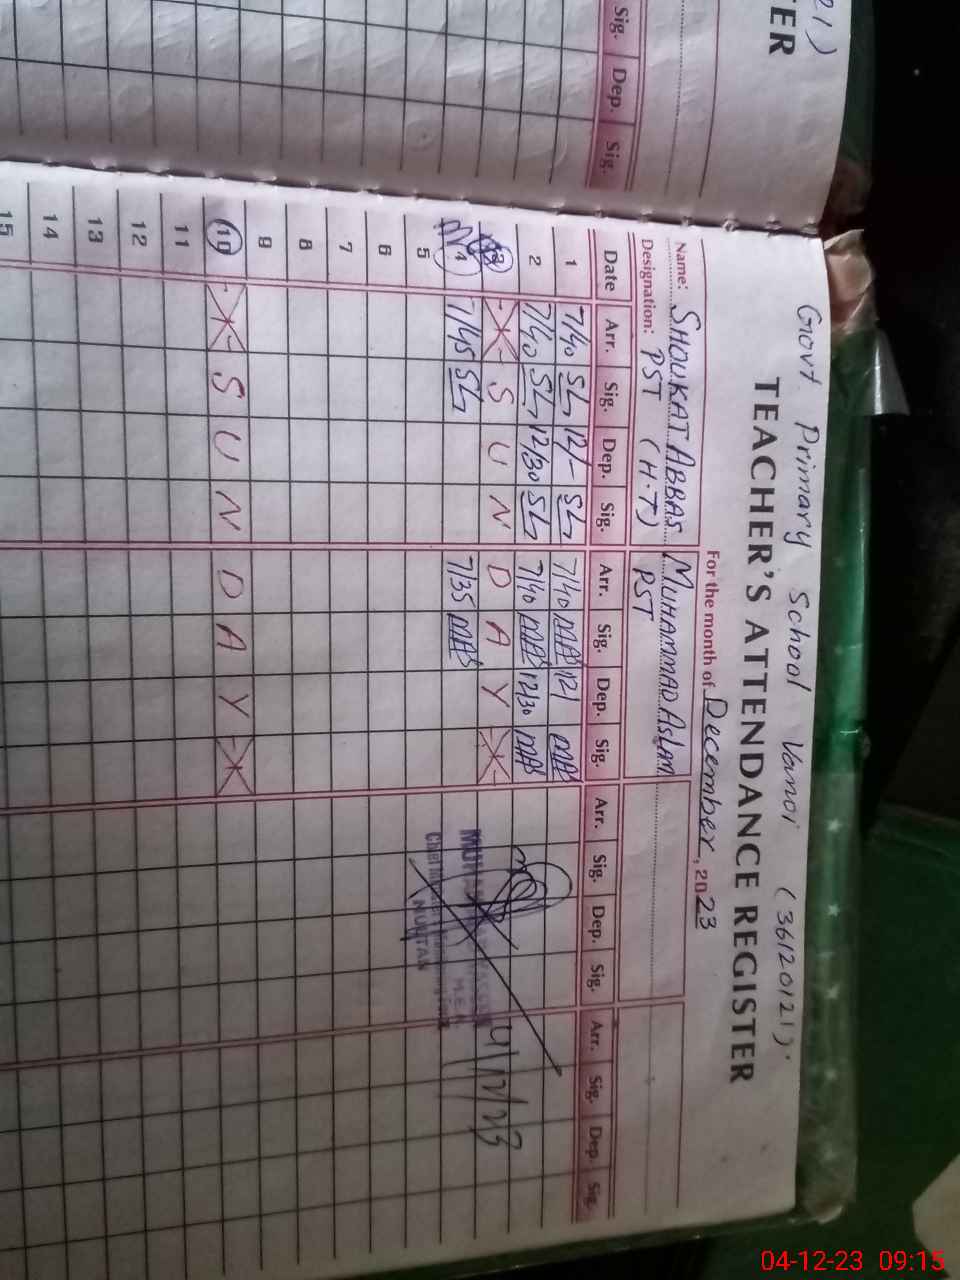 21)
TER
Sig. Dep. Sig.
Govt Primary School Vanoi (36120121).
TEACHER'S ATTENDANCE REGISTER
For the month of December, 2023
Name: SHOUKAT ABBAS MUHAMMAD ASLAM
Designation: PST (H.T) PST
Date Arr. Sig. Dep. Sig. Arr. Sig. Dep. Sig. Arr. Sig. Dep. Sig. Arr. Sig. Dep. Sig.
1 7/40 SL 12/- SL 7/40 MA 12/ MA
2 7/40 SL 12/30 SL 7/40 MA 12/30 MA
3 S U N D A Y
4 7/45 SL 7/35 MA
5
6
7
8
9
10 S U N D A Y
11
12
13
14
15
4/12/23
04-12-23 09:15